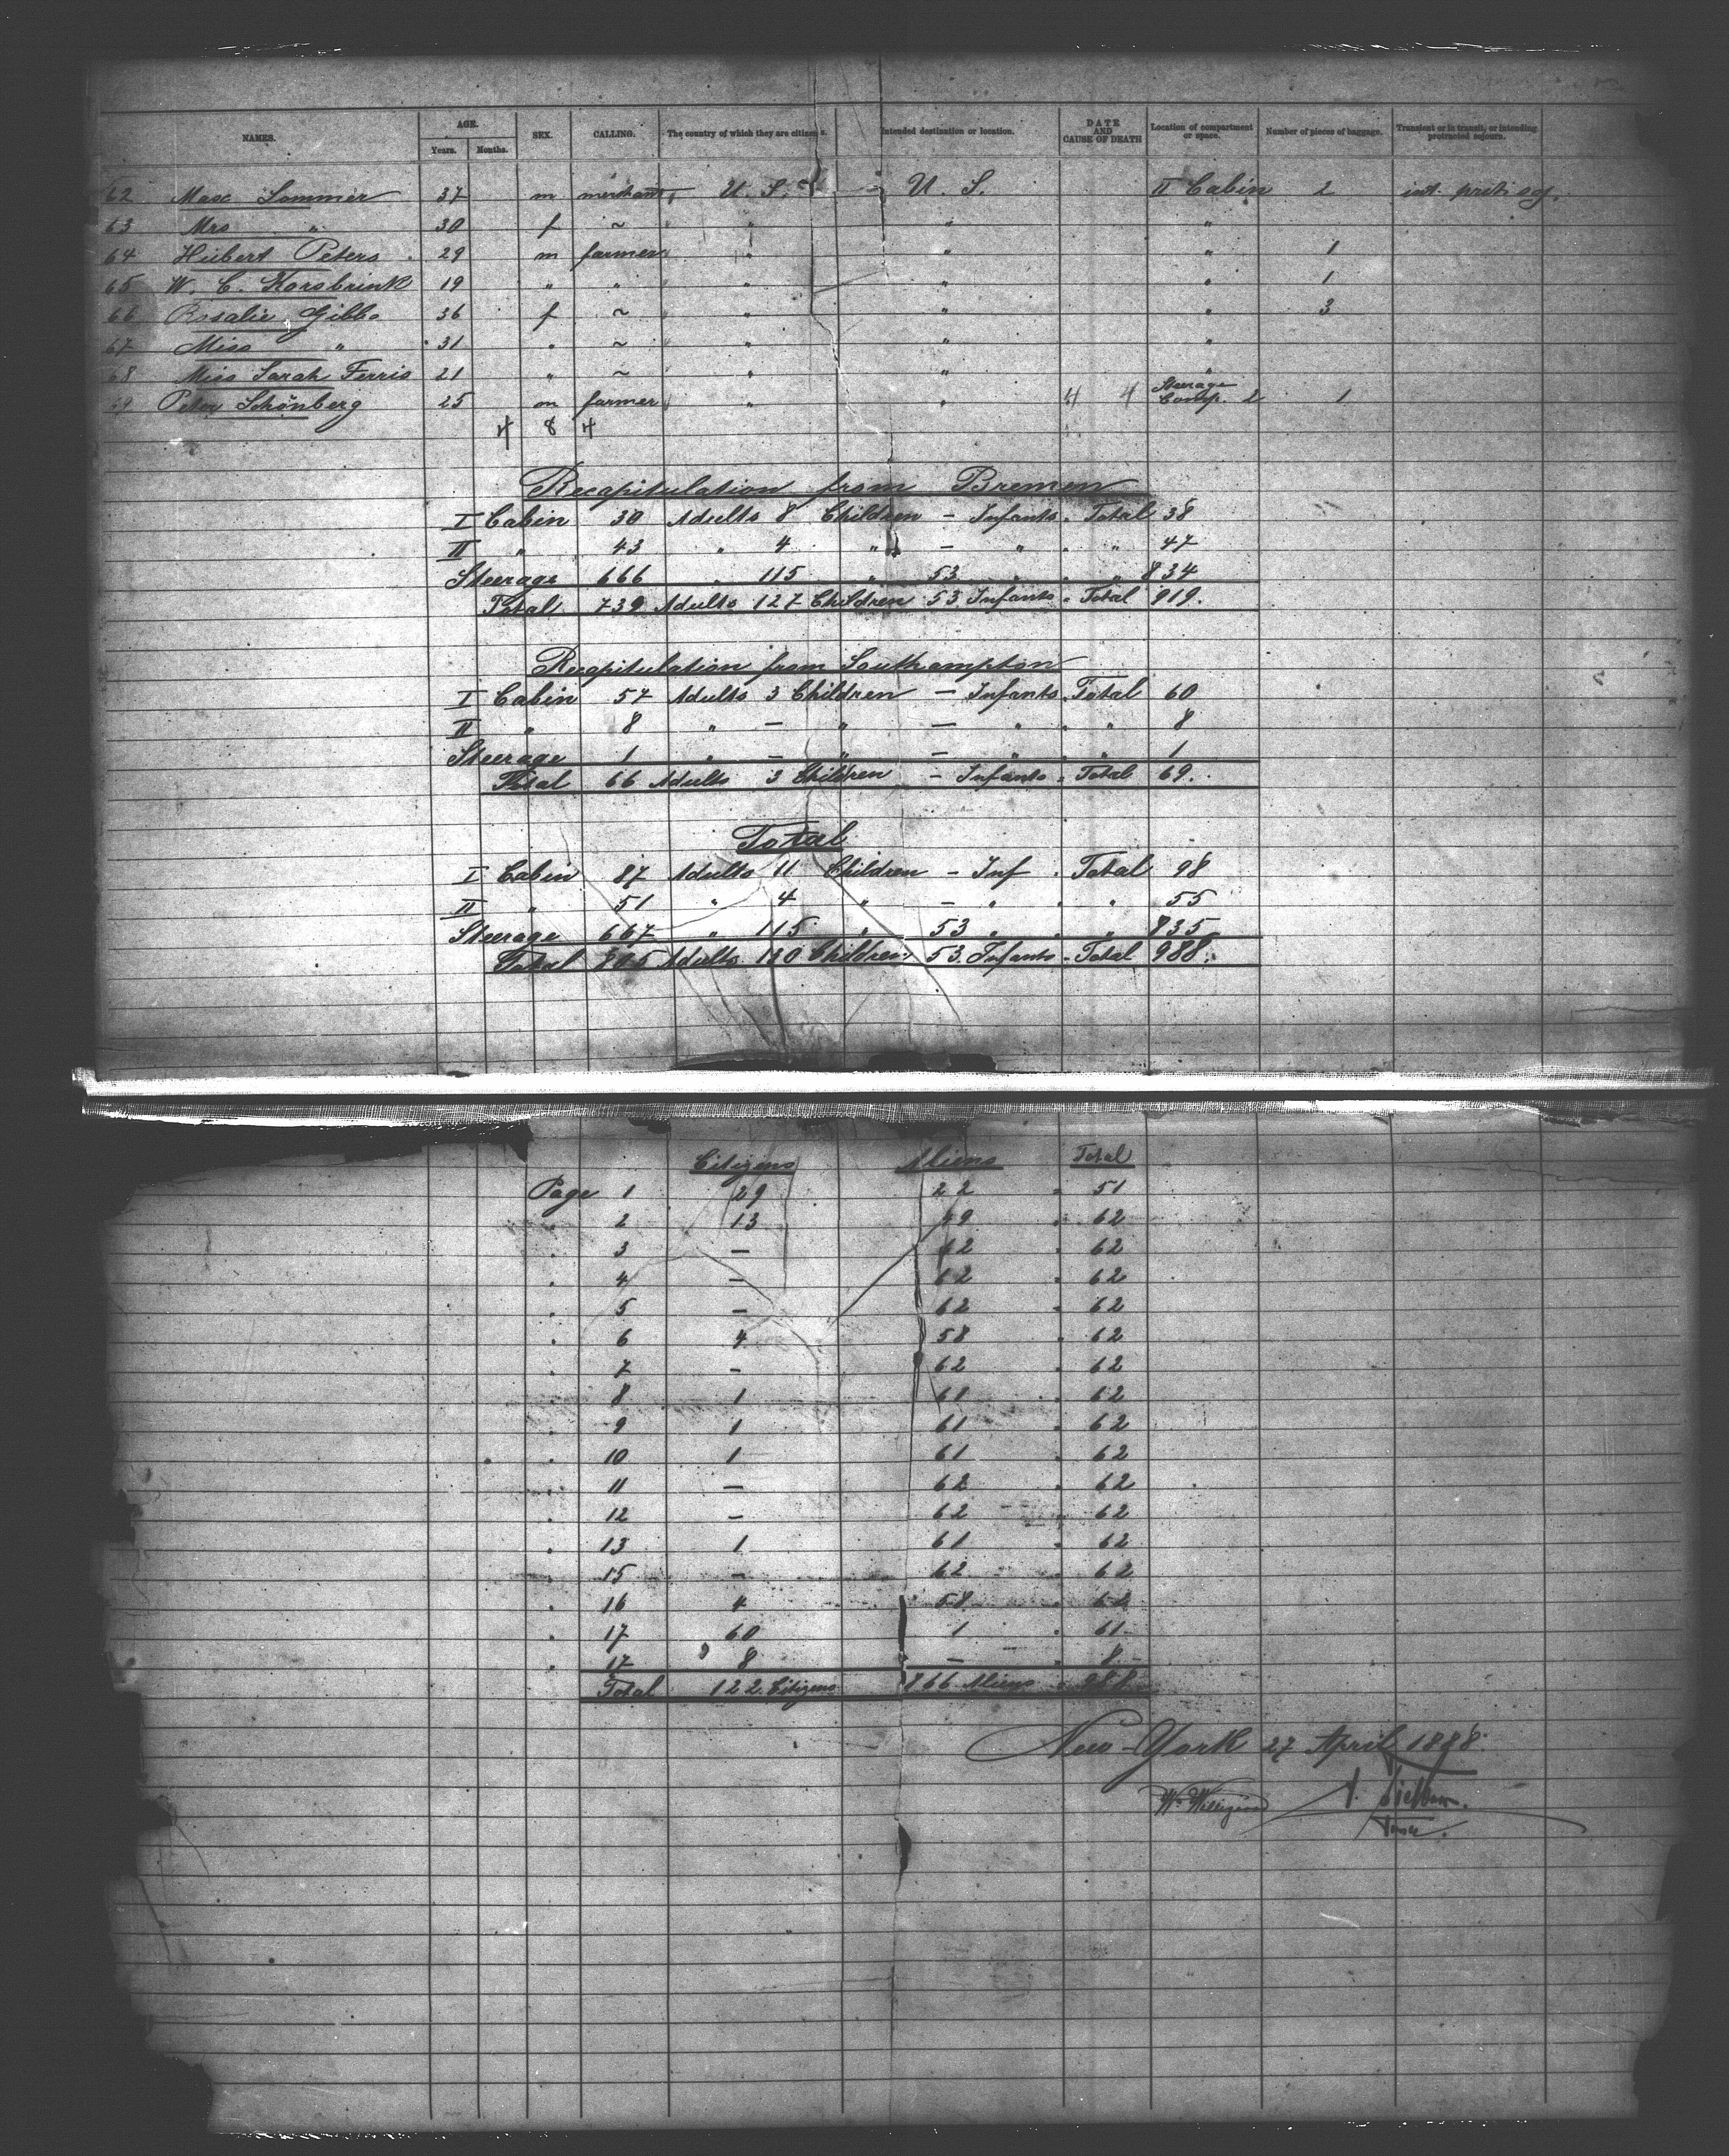 NAMES. AGE. SEX. CALLING. The country of which they are citizens. Intended destination or location. DATE AND CAUSE OF DEATH Location of compartment or space. Number of pieces of baggage. Transient or in transit, or intending protracted sojourn.
Years. Months.
62 Max Sommer 37 m merchant U. S. U. S. II Cabin 2 int. prot. soj.
63 Mrs " 30 f ~ " " "
64 Hubert Peters 29 m farmer " " " 1
65 W. C. Korsbrink 19 " " " " " 1
66 Rosalie Gibbs 36 f ~ " " " 3
67 Miss " 31 " ~ " " "
68 Miss Sarah Ferris 21 " ~ " " "
69 Peter Schönberg 25 m farmer " " 4 4 Steerage Comp. 2 1
4 8 4
Recapitulation from Bremen
I Cabin 30 Adults 8 Children - Infants . Total 38
II " 43 " 4 " - " . " 47
Steerage 666 " 115 " 53 " . " 834
Total 739 Adults 127 Children 53 Infants . Total 919.
Recapitulation from Southampton
I Cabin 57 Adults 3 Children - Infants . Total 60
II " 8 " - " - " . " 8
Steerage 1 " - " - " . " 1
Total 66 Adults 3 Children - Infants . Total 69.
Total
I Cabin 87 Adults 11 Children - Inf . Total 98
II " 51 " 4 " - " . " 55
Steerage 667 " 115 " 53 " . " 835
Total 805 Adults 130 Children 53 Infants . Total 988.
Citizens Aliens Total
Page 1 29 22 . 51
. 2 13 49 . 62
. 3 - 62 . 62
. 4 - 62 . 62
. 5 - 62 . 62
. 6 4 58 . 62
. 7 - 62 . 62
. 8 1 61 . 62
. 9 1 61 . 62
. 10 1 61 . 62
. 11 - 62 . 62
. 12 - 62 . 62
. 13 1 61 . 62
. 15 - 62 . 62
. 16 4 58 . 62
. 17 60 1 . 61
. 17 8 - . 8
Total 122 Citizens 866 Aliens . 988
New-York 27 April 1888.